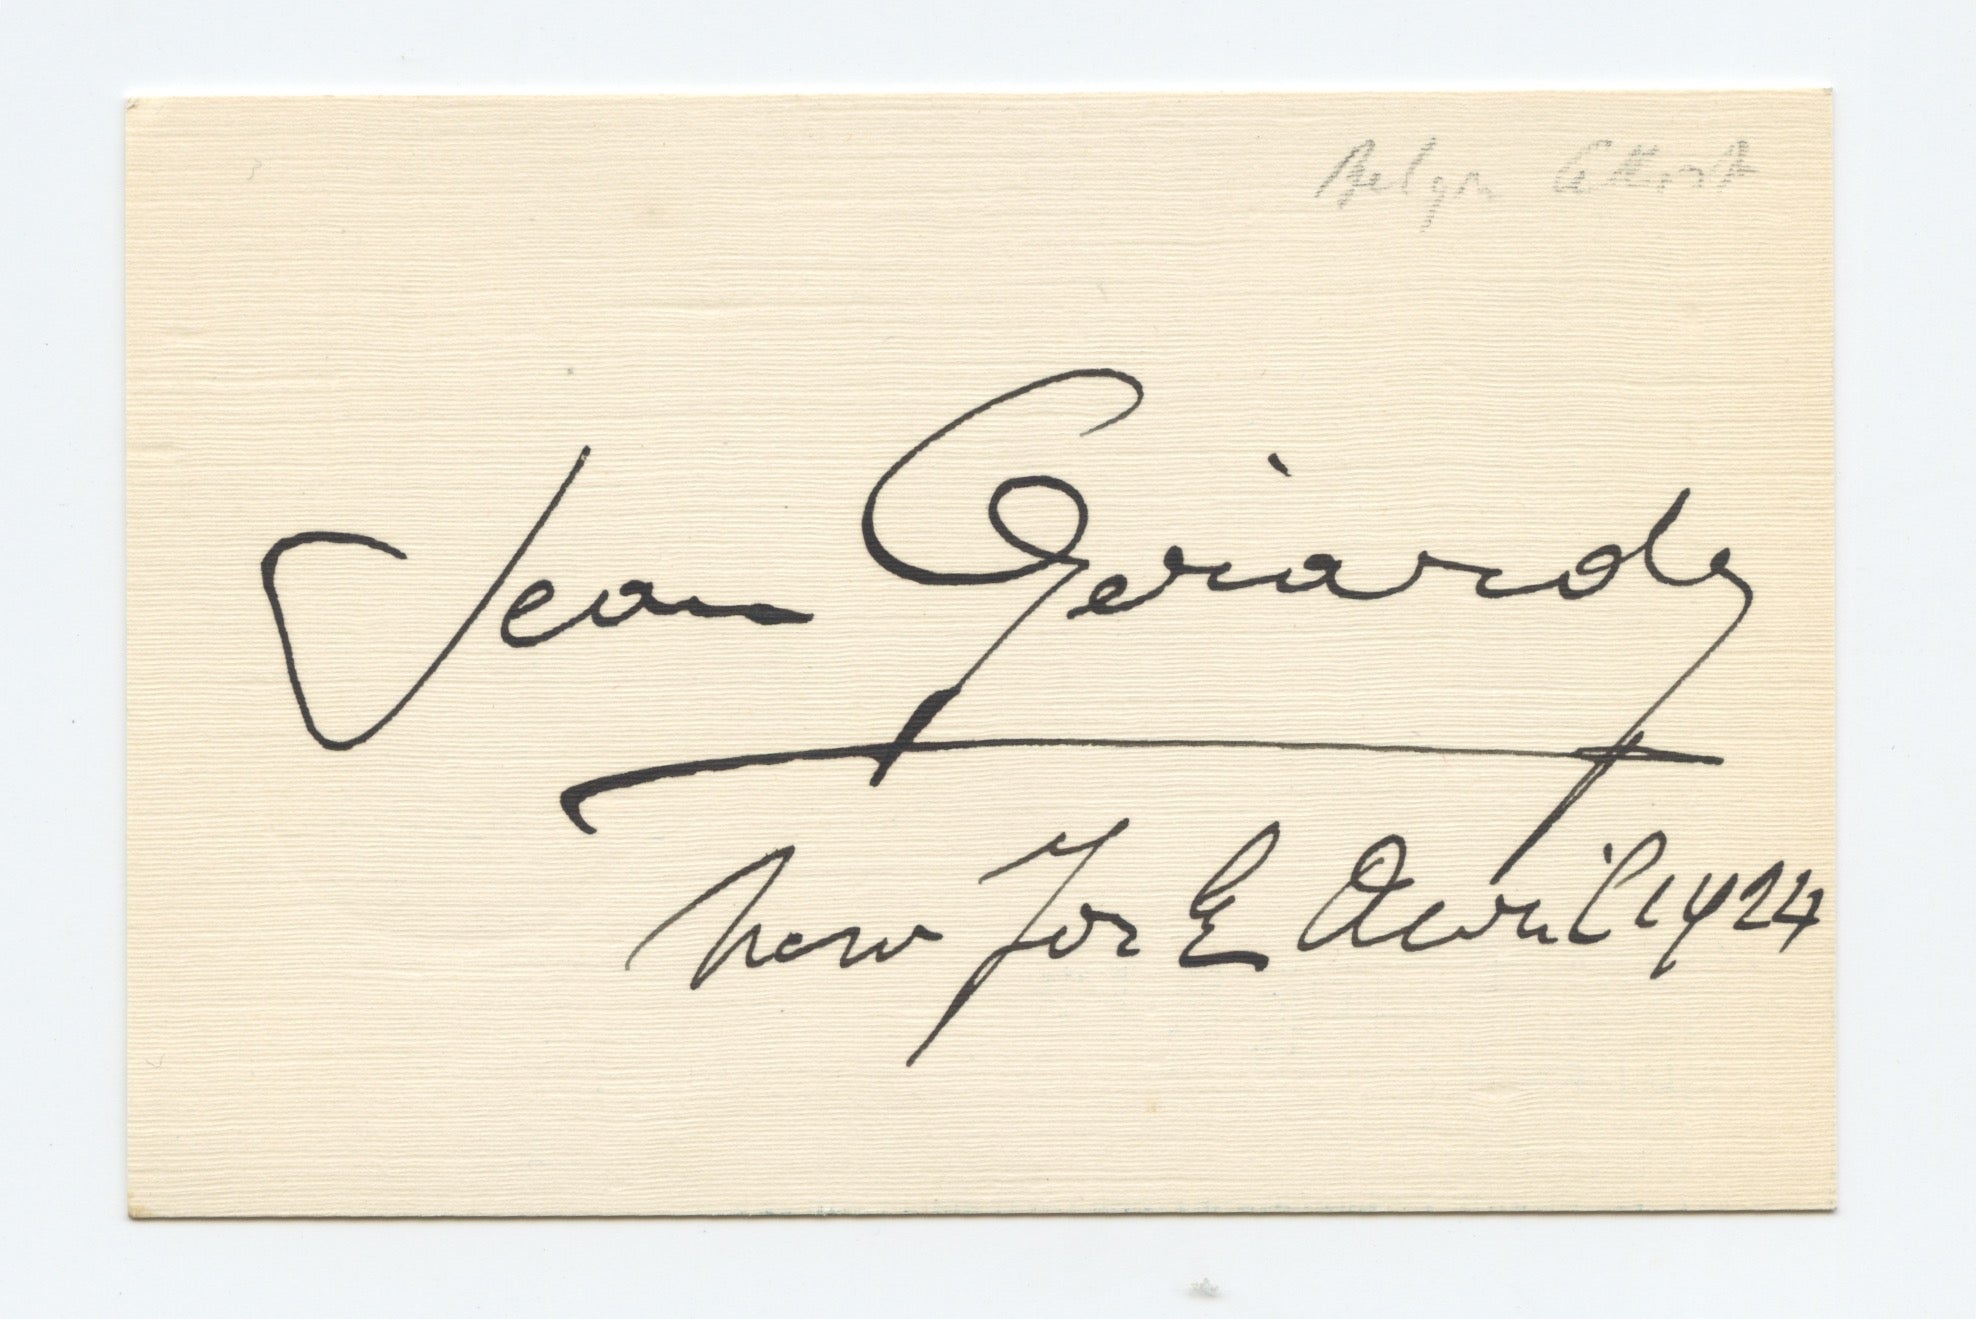 Belgn Cellist
Jean Gérardy
New York Avril 1924